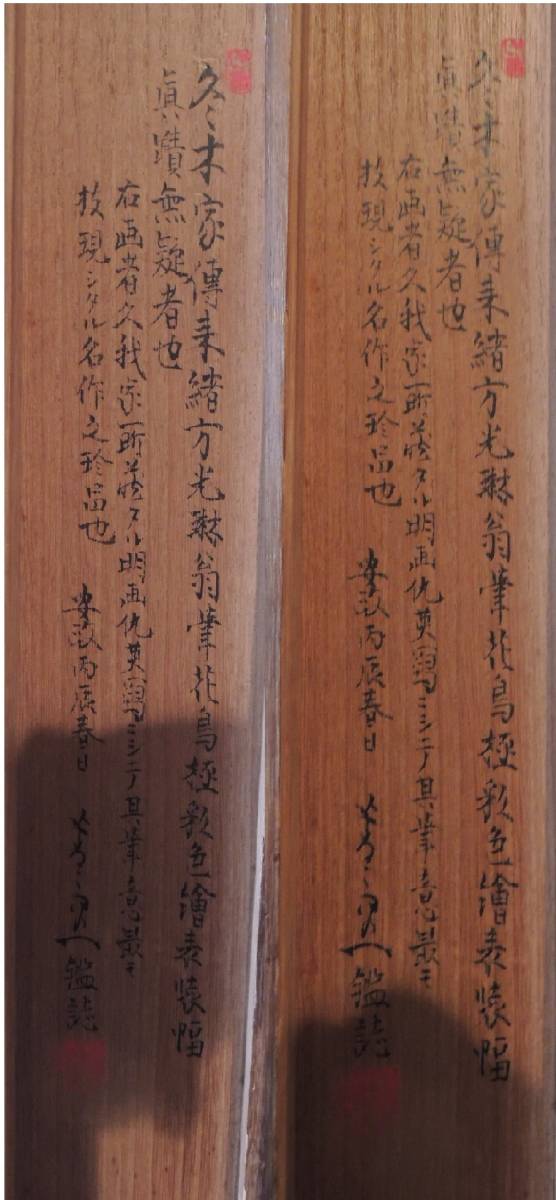 冬木家傳来緒方光琳翁筆花鳥極彩色繪表装幅
真蹟無疑者也
右画者久我家所蔵タル明画仇英寫ニシテ其筆意最モ
技現シタル名作之珍品也
安政丙辰春日
鑑誌
冬木家傳来緒方光琳翁筆花鳥極彩色繪表装幅
真蹟無疑者也
右画者久我家所蔵タル明画仇英寫ニシテ其筆意最モ
技現シタル名作之珍品也
安政丙辰春日
鑑誌